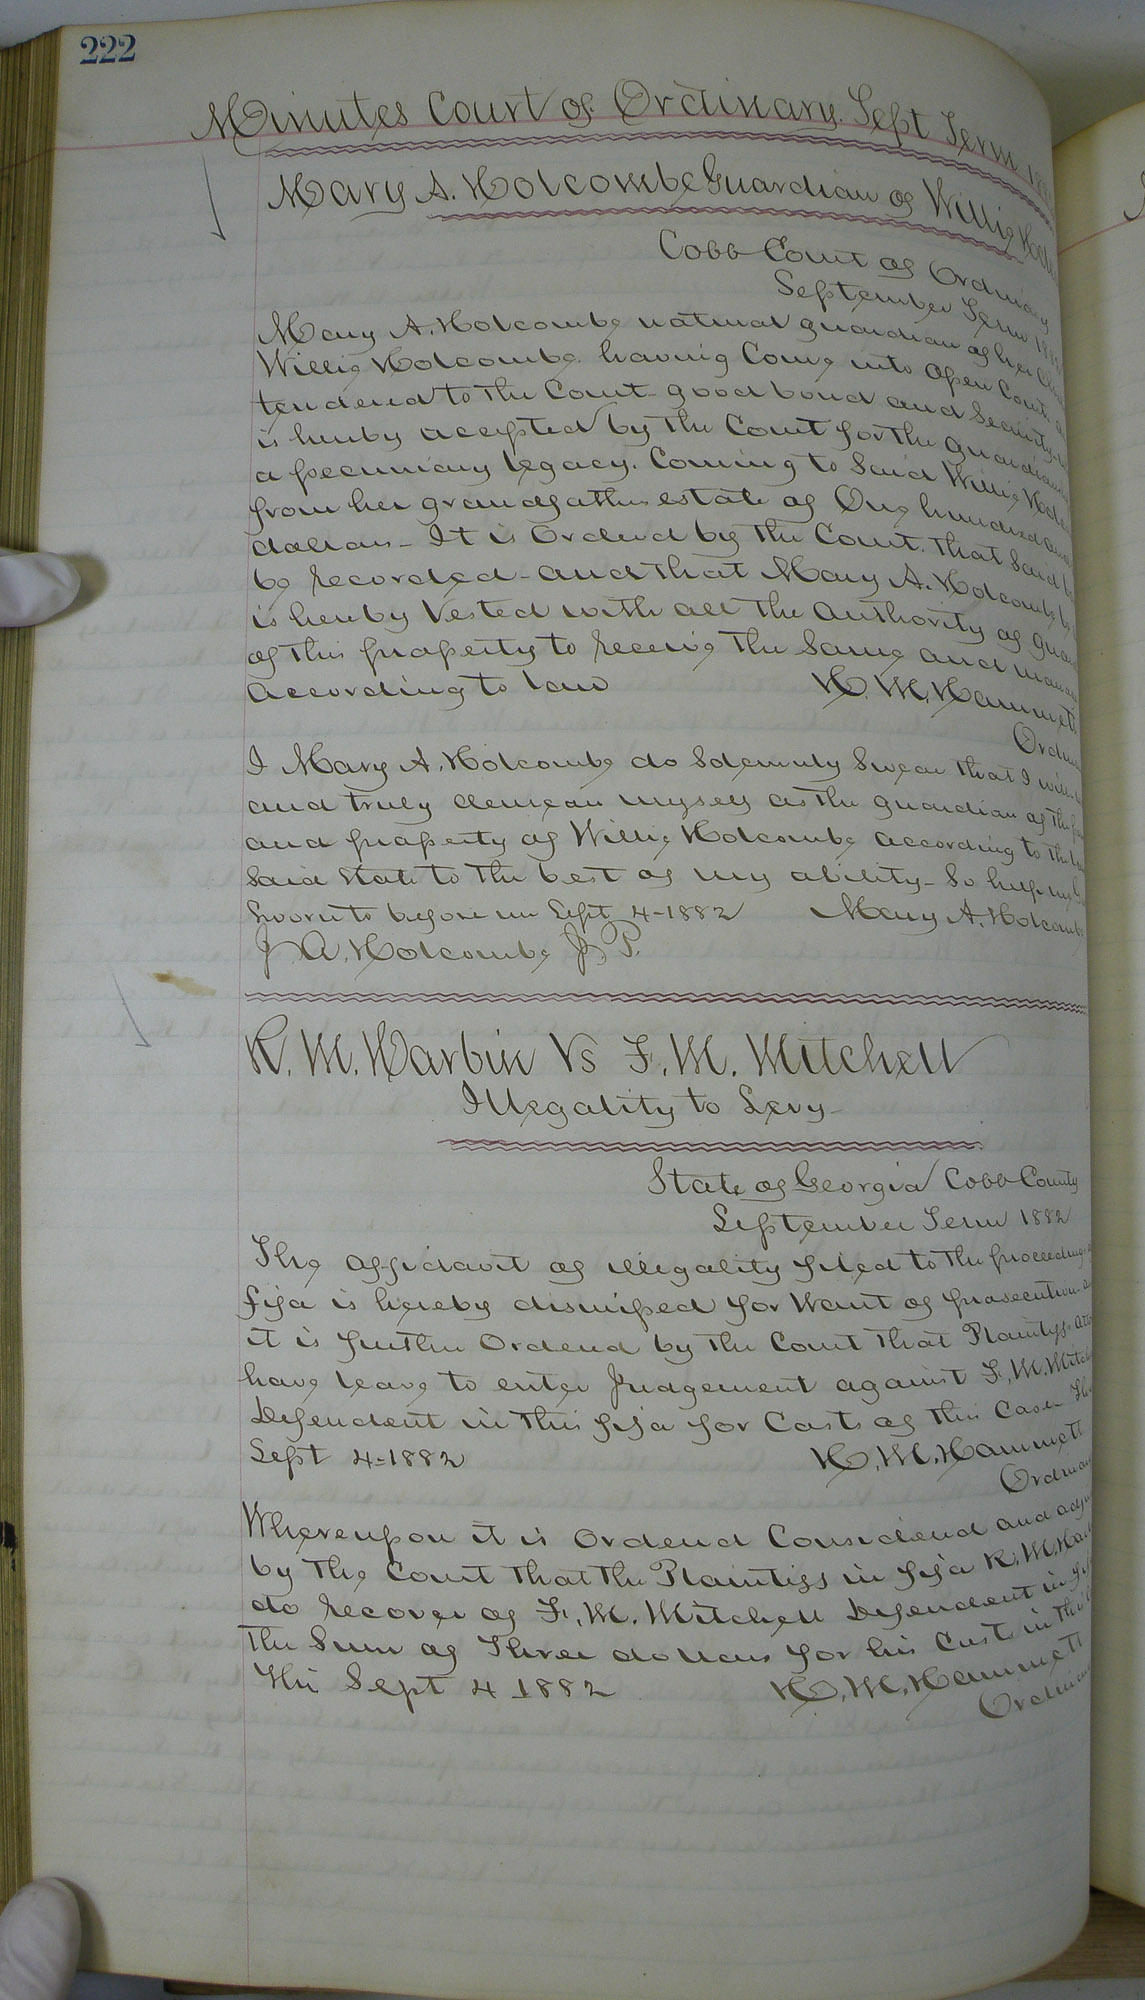 222
Minutes Court of Ordinary. Sept Term
Mary A. Holcombe Guardian of Willie
Cobb Court of Ordinary
September Term
Mary A. Holcombe natural guardian of her
Willie Holcombe having Come into Open Court
tendered to the Court good bond and Security
is hereby accepted by the Court for the
a pecuniary legacy. Coming to said Willie
from her grandfathers estate of One hundred and
dollars - It is Ordered by the Court. That Said
be recorded - and that Mary A. Holcombe
is hereby Vested with all the Authority of
of this property to receive the Same and
according to law H. M. Hammett
I Mary A. Holcombe do Solemnly Swear that I will
and truly demean myself as the guardian of the
and property of Willie Holcombe according to the
Said State to the best of my ability - So help my
Sworn to before me Sept 4-1882 Mary A. Holcombe
J. A. Holcombe J P.
R. M. Harbin Vs F. M. Mitchell
Illegality to Levy -
State of Georgia Cobb County
September Term 1882
The Affidavit of illegality filed to the proceeding
fifa is hereby dismissed for Want of prosecution
it is further Ordered by the Court that Plaintiffs
have leave to enter Judgement against F. M.
Defendent in this fifa for Costs of this Case
Sept 4-1882 H. M. Hammett
Whereupon it is Ordered Considered and
by the Court that the Plaintiffs in fifa R. M.
do recover of F. M. Mitchell Defendent in
the Sum of Three dollars for his Cost in this
This Sept 4 1882 H. M. Hammett